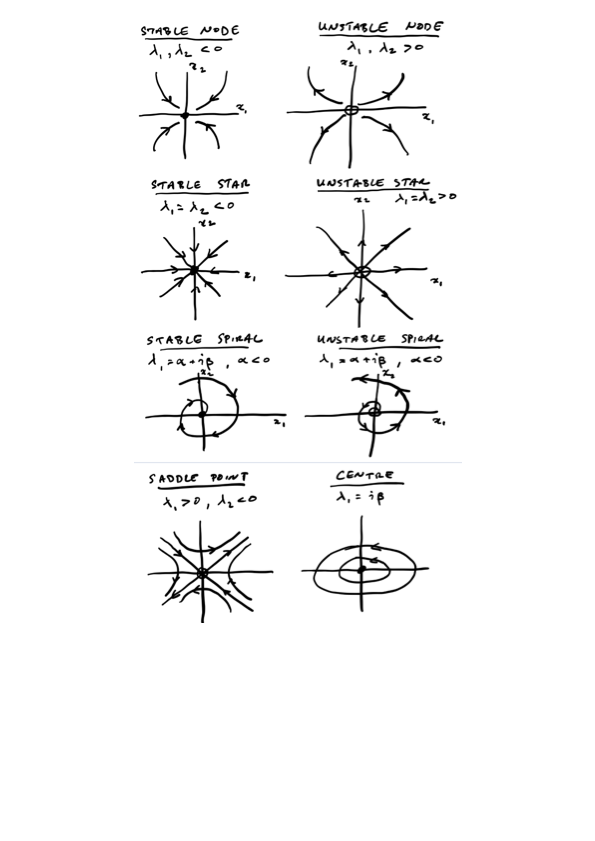 STABLE NODE
λ₁, λ₂ < 0
x₂
x₁
UNSTABLE NODE
λ₁, λ₂ > 0
x₂
x₁
STABLE STAR
λ₁ = λ₂ < 0
x₂
x₁
UNSTABLE STAR
x₂ λ₁ = λ₂ > 0
x₁
STABLE SPIRAL
λ₁ = α + iβ, α < 0
x₂
x₁
UNSTABLE SPIRAL
λ₁ = α + iβ, α < 0
x₂
x₁
SADDLE POINT
λ₁ > 0, λ₂ < 0
CENTRE
λ₁ = iβ